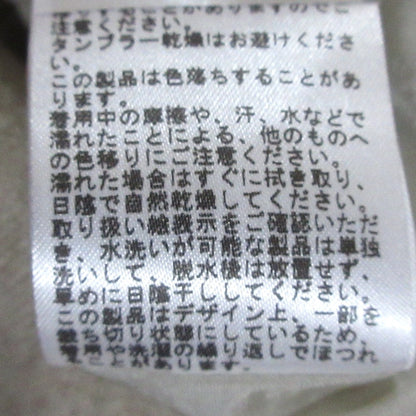 ることがありますのでご
注意ください。
タンブラー乾燥はお避けくださ
い。
この製品は色落ちすることがあ
ります。
着用中の摩擦や、汗、水などで
濡れたことによる、他のものへ
の色移りにご注意ください。
濡れた場合はすぐに拭き取り、
日陰で自然乾燥してください。
取り扱い絵表示をご確認いただ
き、水洗いが可能な製品は単独
洗いして、脱水後は放置せず、
早めに日陰干ししてください。
この製品はデザイン上、一部を
切り状態にしているため、
洗濯の繰り返しでほつれ